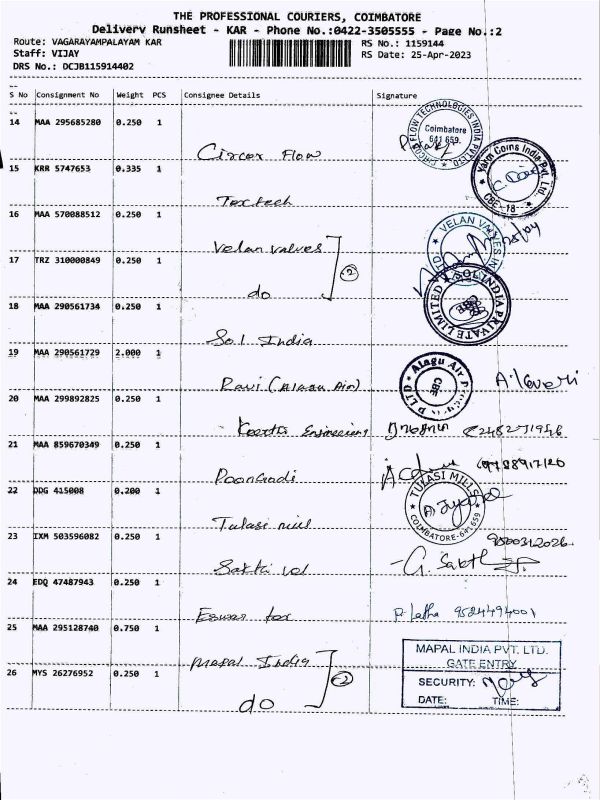 THE PROFESSIONAL COURIERS, COIMBATORE
Delivery Runsheet - KAR - Phone No.:0422-3505555 - Page No.:2
Route: VAGARAYAMPALAYAM KAR
RS No.: 1159144
Staff: VIJAY
RS Date: 25-Apr-2023
DRS No.: DCJB115914402
S No Consignment No Weight PCS Consignee Details Signature
14 MAA 295685280 0.250 1
FLOW TECHNOLOGIES INDIA PVT LTD
Coimbatore
641 659.
Circor Flow
15 KRR 5747653 0.335 1
Yarm Coms India Pvt. Ltd.
CBE-18
Textech
16 MAA 570088512 0.250 1
VELAN VALVES IN
Velan valves
17 TRZ 310000849 0.250 1
2
do
18 MAA 290561734 0.250 1
SOLINDIA PRIVATE LIMITED
Sol India
19 MAA 290561729 2.000 1
Alagu Air
P LTD
CBE
Ravi (Alagu Air)
20 MAA 299892825 0.250 1
Keerthi Engineering
21 MAA 859670349 0.250 1
Poongodi
22 DDG 415008 0.200 1
TULASI MILLS
COIMBATORE-641 659
Tulasi mill
23 IXM 503596082 0.250 1
9500312026
Sakthi vel
G. Sakthi
24 EDQ 47487943 0.250 1
Eswar tex
P. Latha 9524494001
25 MAA 295128740 0.750 1
MAPAL INDIA PVT. LTD.
GATE ENTRY
Mapal India
26 MYS 26276952 0.250 1
2
SECURITY:
do
DATE: TIME: